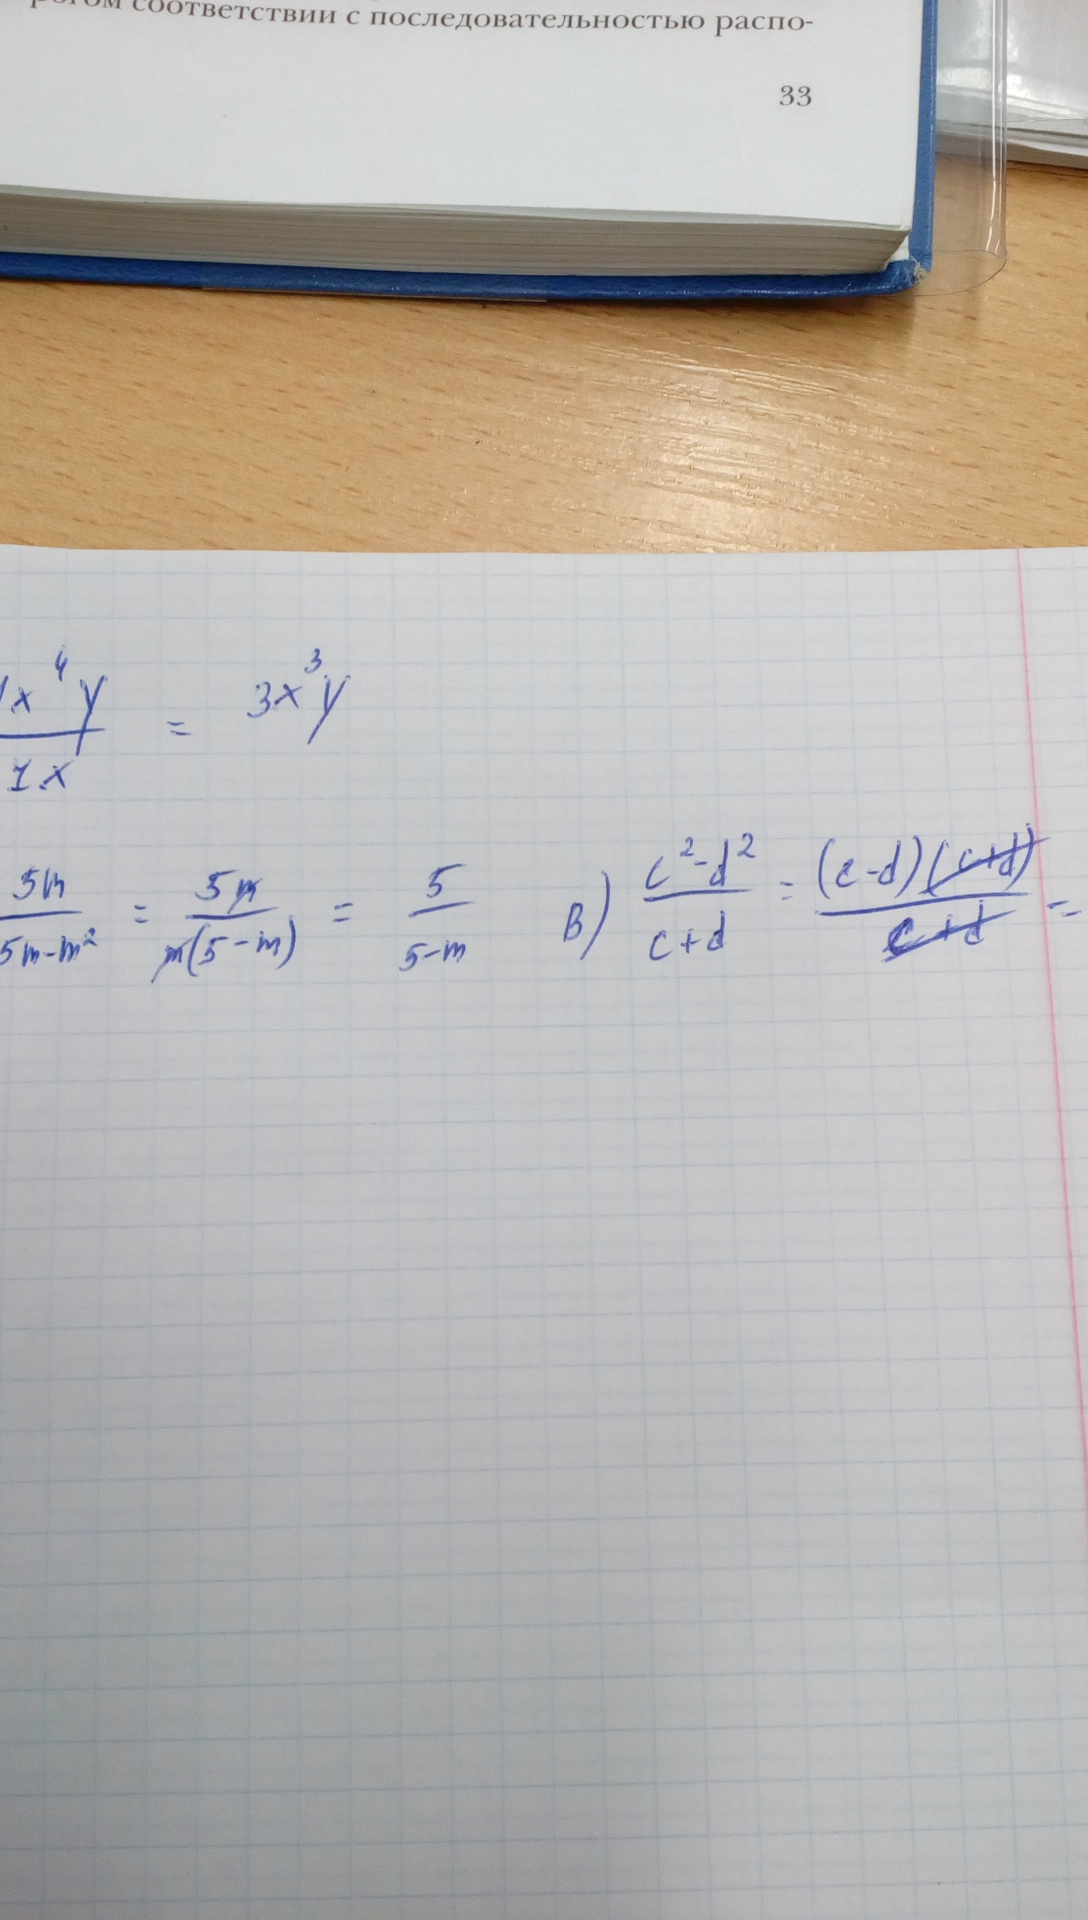 соответствии с последовательностью распо-
33
x⁴y / 1x = 3x³y
5m / 5m-m² = 5m / m(5-m) = 5 / 5-m В) c²-d² / c+d = (c-d)(c+d) / c+d =